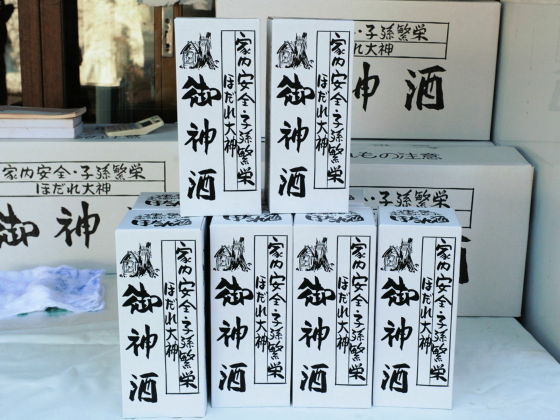 家内安全・子孫繁栄
ほだれ大神
御神酒
家内安全・子孫繁栄
ほだれ大神
御神酒
・子孫繁栄
大神
神酒
家内安全・子孫繁栄
ほだれ大神
御神
れもの注意
子孫繁栄
家内安全・子孫繁栄
ほだれ大神
御神酒
家内安全・子孫繁栄
ほだれ大神
御神酒
家内安全・子孫繁栄
ほだれ大神
御神酒
家内安全・子孫繁栄
ほだれ大神
御神酒